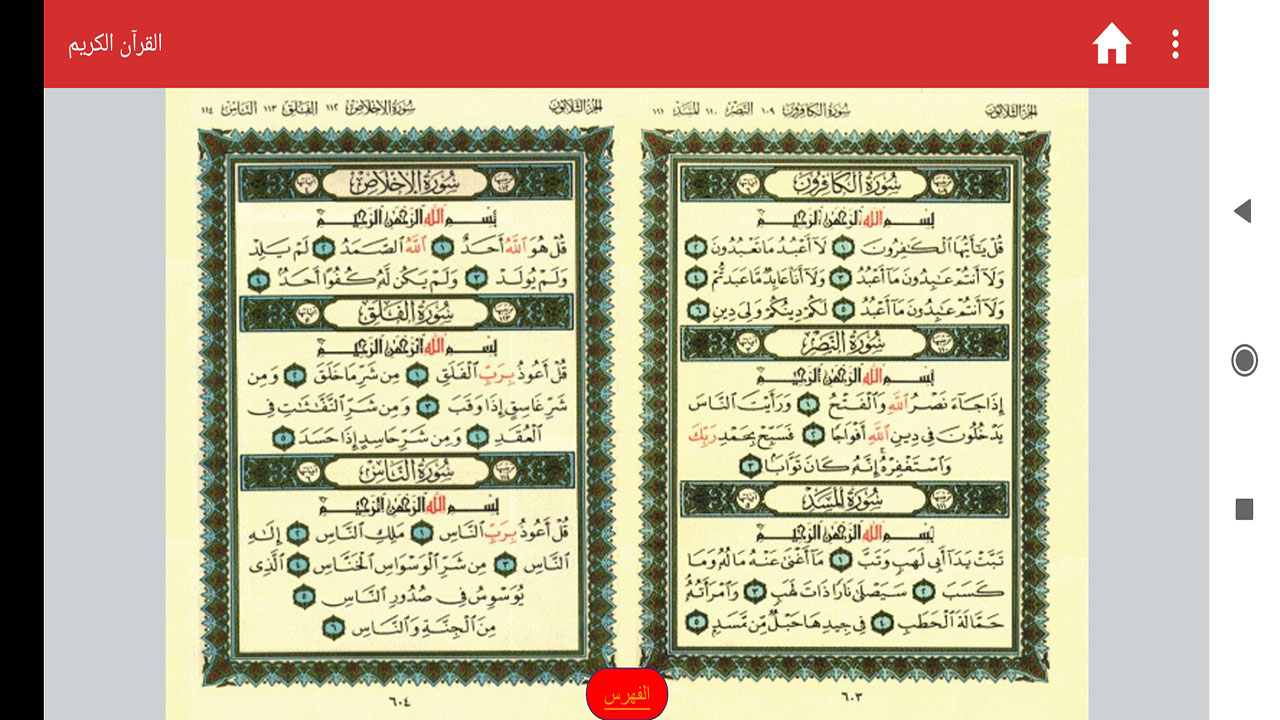 القرآن الكريم
الجزء الثلاثون
سورة الكافرون ١٠٩ النصر ١١٠ المسد ١١١
سُورَةُ الكافِرون
بِسْمِ اللَّهِ الرَّحْمَٰنِ الرَّحِيمِ
قُلْ يَٰٓأَيُّهَا ٱلْكَٰفِرُونَ ١ لَآ أَعْبُدُ مَا تَعْبُدُونَ ٢
وَلَآ أَنتُمْ عَٰبِدُونَ مَآ أَعْبُدُ ٣ وَلَآ أَنَا۠ عَابِدٌ مَّا عَبَدتُّمْ ٤
وَلَآ أَنتُمْ عَٰبِدُونَ مَآ أَعْبُدُ ٥ لَكُمْ دِينُكُمْ وَلِىَ دِينِ ٦
سُورَةُ النَّصْر
بِسْمِ اللَّهِ الرَّحْمَٰنِ الرَّحِيمِ
إِذَا جَآءَ نَصْرُ ٱللَّهِ وَٱلْفَتْحُ ١ وَرَأَيْتَ ٱلنَّاسَ
يَدْخُلُونَ فِى دِينِ ٱللَّهِ أَفْوَاجًا ٢ فَسَبِّحْ بِحَمْدِ رَبِّكَ
وَٱسْتَغْفِرْهُ إِنَّهُۥ كَانَ تَوَّابًۢا ٣
سُورَةُ المَسَد
بِسْمِ اللَّهِ الرَّحْمَٰنِ الرَّحِيمِ
تَبَّتْ يَدَآ أَبِى لَهَبٍ وَتَبَّ ١ مَآ أَغْنَىٰ عَنْهُ مَالُهُۥ وَمَا
كَسَبَ ٢ سَيَصْلَىٰ نَارًا ذَاتَ لَهَبٍ ٣ وَٱمْرَأَتُهُۥ
حَمَّالَةَ ٱلْحَطَبِ ٤ فِى جِيدِهَا حَبْلٌ مِّن مَّسَدٍۭ ٥
٦٠٣
الجزء الثلاثون
سورة الإخلاص ١١٢ الفلق ١١٣ الناس ١١٤
سُورَةُ الإِخْلَاص
بِسْمِ اللَّهِ الرَّحْمَٰنِ الرَّحِيمِ
قُلْ هُوَ ٱللَّهُ أَحَدٌ ١ ٱللَّهُ ٱلصَّمَدُ ٢ لَمْ يَلِدْ
وَلَمْ يُولَدْ ٣ وَلَمْ يَكُن لَّهُۥ كُفُوًا أَحَدٌۢ ٤
سُورَةُ الفَلَق
بِسْمِ اللَّهِ الرَّحْمَٰنِ الرَّحِيمِ
قُلْ أَعُوذُ بِرَبِّ ٱلْفَلَقِ ١ مِن شَرِّ مَا خَلَقَ ٢ وَمِن
شَرِّ غَاسِقٍ إِذَا وَقَبَ ٣ وَمِن شَرِّ ٱلنَّفَّٰثَٰتِ فِى
ٱلْعُقَدِ ٤ وَمِن شَرِّ حَاسِدٍ إِذَا حَسَدَ ٥
سُورَةُ النَّاس
بِسْمِ اللَّهِ الرَّحْمَٰنِ الرَّحِيمِ
قُلْ أَعُوذُ بِرَبِّ ٱلنَّاسِ ١ مَلِكِ ٱلنَّاسِ ٢ إِلَٰهِ
ٱلنَّاسِ ٣ مِن شَرِّ ٱلْوَسْوَاسِ ٱلْخَنَّاسِ ٤ ٱلَّذِى
يُوَسْوِسُ فِى صُدُورِ ٱلنَّاسِ ٥
مِنَ ٱلْجِنَّةِ وَٱلنَّاسِ ٦
٦٠٤
الفهرس